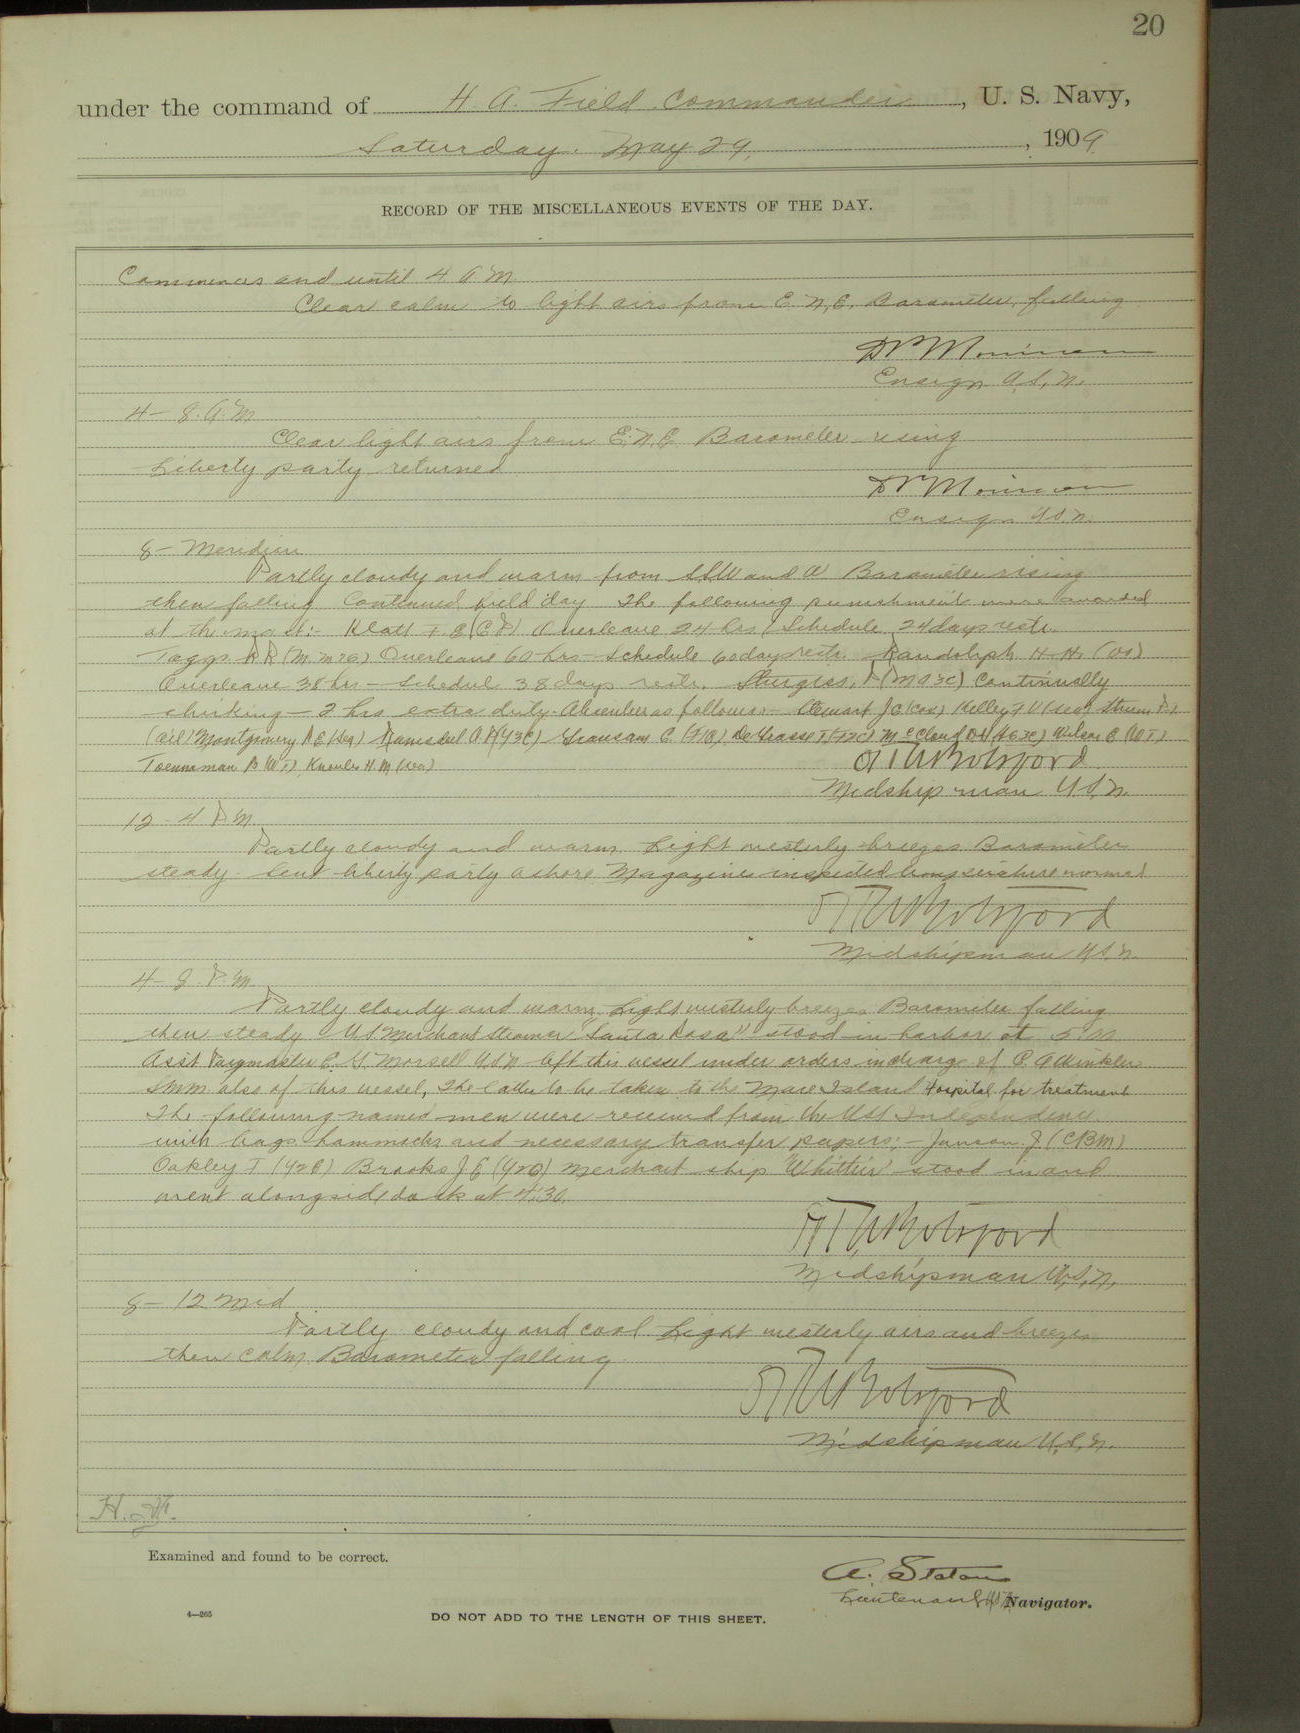 20
under the command of H. A. Field. Commander, U. S. Navy,
Saturday. May 29, 1909
RECORD OF THE MISCELLANEOUS EVENTS OF THE DAY.
Commences and until 4 A M
Clear calm to light airs from E. N, E, Barometer, falling
Ensign U.S.N.
4 - 8. A. M
Clear light airs from E.N.E Barometer rising
Liberty party returned
Ensign U.S.N.
8 - Meridian
Partly cloudy and warm from SSW and W Barometer rising
then falling Continued field day The following punishment were awarded
at the mast:- Klatt F. E (CP) Overleave 24 hrs / Schedule 24 days restr.
Taggs R R (M.M 2C) Overleave 60 hrs - Schedule 60 days restr. Randolph H. H. (OS)
Overleave 38 hrs - Schedul 38 days restr. Sturgiss, P (M A 3C) Continually
shirking - 2 hrs extra duty. Absentees as follows:- Stewart J C (Cox) Kelley F V (sea)
(Oil) Montgomery R E Ramsdeel A P (Y3C) DeGrasse T (F2C) McCloud Wilson C (W T)
Toennaman B (W T) Knowles H M (sea)
Midshipman U.S.N.
12 - 4 P M.
Partly cloudy and warm. Light westerly breezes Barometer
steady. Sent liberty party ashore. Magazines inspected temperature normal
Midshipman U.S.N.
4 - 8. P. M
Partly cloudy and warm. Light westerly breezes Barometer falling
then steady U S Merchant Steamer "Santa Rosa" stood in harbor at
Asst Paymaster C. G. Morsell U.S.N left this vessel under orders in charge of C. A Winkler
SMM also of this vessel, The latter to be taken to the Mare Island Hospital for treatment
The following named men were received from the USS Independence
with bags hammocks and necessary transfer papers;- Janson. J (CBM)
Oakley T (Y2C) Brooks J E (Y2C) Merchant ship 'Whittier' stood in and
went alongside dock at 4:30.
Midshipman U.S.N.
8 - 12 Mid
Partly cloudy and cool Light westerly airs and breezes
then calm. Barometer falling
Midshipman U.S.N.
Examined and found to be correct.
A. Staton
Lieutenant U.S.N. Navigator.
4—265
DO NOT ADD TO THE LENGTH OF THIS SHEET.